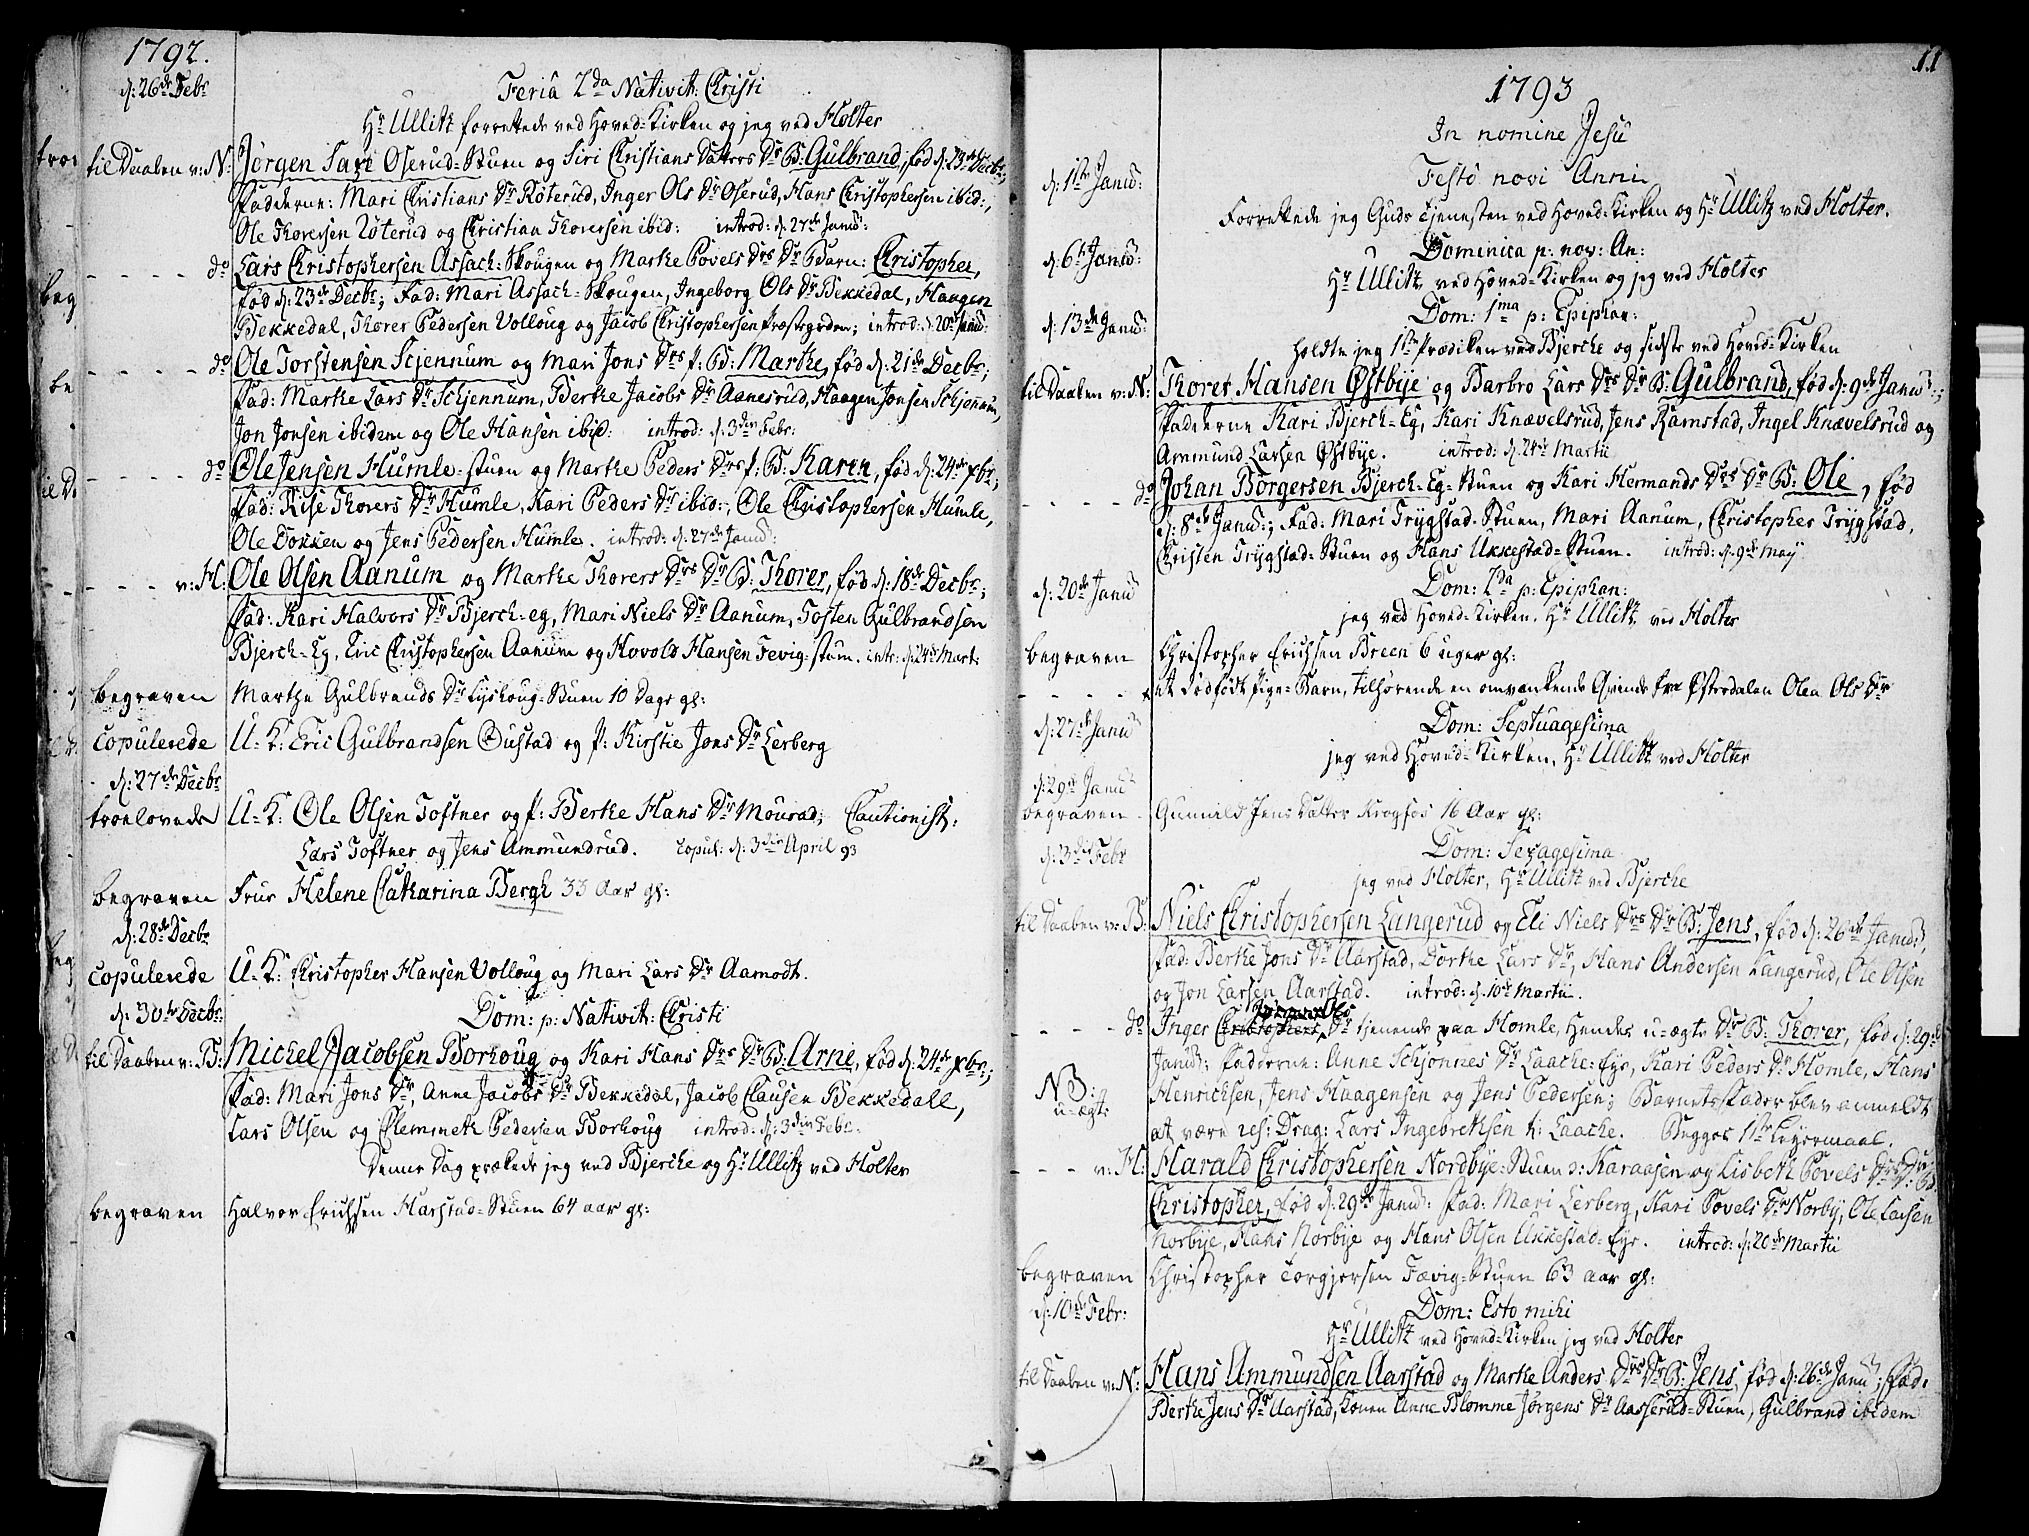 1792.
d: 26de Febr
Feria 2da Nativit: Christi
Hr Ullitz forrettede ved Hoved-Kirken og jeg ved Holter
til Daaben v: N: Jørgen Oserud-Stuen og Siri Christians Datters Dr B: Gulbrand, fød d: 23de Decbr;
Fadderne: Mari Christians Dr Røterud, Inger Ols Dr Oserud, Hans Christophersen ibid:,
Ole Thorersen Røterud og Christian Thorersen ibid: introd: d: 27de Janu:
do Lars Christophersen Assach-Skougen og Marthe Povels Drs Dr Barn: Christopher,
fød d: 23de Decbr; Fad: Mari Assach-Skougen, Ingeborg Ols Dr Bekkedal, Haagen
Bekkedal, Thorer Pedersen Volloug og Jacob Christophersen Præstegrden; introd: d: 20de Janu:
do Ole Torstensen Scjennum og Mari Jons Drs p: B: Marthe, fød d: 21de Decbr;
Fad: Marthe Lars Dr Schjennum, Berthe Jacobs Dr Aanesrud, Haagen Jonsen Schjennum,
Jon Jonsen ibidem og Ole Hansen ibid: introd: d: 3die Febr:
do Ole Jensen Humle-stuen og Marthe Peders Drs p: B: Karen, fød d: 24de xbr;
Fad: Lise Thorers Dr Humle, Kari Peders Dr ibid:, Ole Christophersen Humle,
Ole Dokken og Jens Pedersen Humle. introd: d: 27de Janu:
v: H: Ole Olsen Aanum og Marthe Thorers Drs Dr B: Thorer, fød d: 18de Decbr;
Fad: Kari Halvors Dr Bjerch-eg, Mari Niels Dr Aanum, Tosten Gulbrandsen
Bjerch-Eg, Eric Christophersen Aanum og Hovold Hansen Fevig-stuen. intr: d: 24de Mart:
begraven Marthe Gulbrands Dr Lyshoug-Stuen 10 Dage gl:
copulerede U-K: Eric Gulbrandsen Bustad og p: Kirstie Jons Dr Lerberg
d: 27de Decbr
troelovede U-K: Ole Olsen Toftner og p: Berthe Hans Dr Mourad; Cautionist:
Lars Toftner og Jens Ammundrud. Copul: d: 3die April 93
begraven Frue Helene Catharina Bergh 33 Aar gl:
d: 28de Decbr
copulerede U-K: Christopher Hansen Volloug og Mari Lars Dr Aamodt.
d: 30te Decbr:
Dom: p: Nativit: Christi
til Daaben v: B: Michel Jacobsen Borhoug og Kari Hans Drs Dr B: Arne, fød d: 24de xbr;
Fad: Mari Jons Dr, Anne Jacobs Dr Bekkedal, Jacob Clausen Bekkedall,
Lars Olsen og Clemmeth Pedersen Borhoug introd: d: 3die Febr:
Denne Dag prækede jeg ved Bjerche og Hr Ullitz ved Holter
begraven Halvor Erichsen Harstad-Stuen 64 aar gl:
11
1793
In nomine Jesu
d: 1te Janu: Festo novi Anni
Forrettede jeg Guds Tjenesten ved Hoved-Kirken og Hr Ullitz ved Holter.
d: 6te Janu: Dominica p: nov: An:
Hr Ullitz ved Hoved-Kirken og jeg ved Holter
d: 13de Janu: Dom: 1ma p: Epiphan:
holdte jeg 1te Prædiken ved Bjerche og sidste ved Hoved-Kirken
til Daaben v: N: Thorer Hansen Østbye og Barbro Lars Drs Dr B: Gulbrand, fød d: 9de Janu:;
Fadderne Kari Bjerch-Eg, Kari Knævelsrud, Jens Ramstad, Ingel Knævelsrud og
Ammund Larsen Østbye. introd: d: 24de Martii
do Johan Børgersen Bjerch-Eg-Stuen og Kari Hermands Drs Dr B: Ole, fød
d: 8de Janu:; Fad: Mari Trygstad-Stuen, Mari Aanum, Christopher Trygstad,
Christen Trygstad-Stuen og Hans Ukkestad-Stuen. introd: d: 9de May
d: 20de Janu Dom: 2da p: Epiphan:
jeg ved Hoved-Kirken. Hr Ullitz ved Holter
begraven Christopher Erichsen Breen 6 uger gl:
et dødfødt Pige-Barn, tilhørende en omvankende Qvinde fra Østerdalen Olea Ols Dr
d: 27de Janu Dom: Septuagesima
jeg ved Hoved-Kirken, Hr Ullitz ved Holter
d: 29de Janu
begraven Gunnild Jens Datter Krogfos 16 Aar gl:
d: 3die Febr Dom: Sexagesima
jeg ved Holter, Hr Ullitz ved Bjerche
til Daaben v: B: Niels Christophersen Langerud og Eli Niels Drs Dr B: Jens, fød d: 26de Janu:,
Fad: Berthe Jons Dr Aarstad, Dorthe Lars Dr, Hans Andersen Langerud, Ole Olsen
og Jon Larsen Aarstad. introd: d: 10de Martii.
do Inger Christophers Dr tjenende paa Homle, Hendes u-ægte Dr B: Thorer, fød d: 29de
Janu: Fadderne: Anne Schjonnes Dr Laache-Eye, Kari Peders Dr Homle, Hans
NB: u-ægte Henrichsen, Jens Haagensen og Jens Pedersen; Barnets Fader blev anmeldt
at være res: Drag: Lars Ingebrethsen k: Laache. Begges 1te Leyermaal.
v: H: Harald Christophersen Nordbye-Stuen o: Karaasen og Lisbeth Povels Drs Dr B:
Christopher, fød d: 29de Janu: Fad: Mari Lerberg, Kari Povels Dr Norby, Ole Larsen
Norbye, Hans Norbye og Hans Olsen Ukkestad-Eye. introd: d: 20de Martii
begraven Christopher Torgjersen Fævig-Stuen 63 aar gl:
d: 10de Febr: Dom: Esto mihi
Hr Ullitz ved Hoved-Kirken jeg ved Holter
til Daaben v: N: Hans Ammundsen Aarstad og Marthe Anders Drs Dr B: Jens, fød d: 26de Janu; Fad.
Berthe Jens Dr Aarstad, Konen Anne Blomme Jørgens Dr Aasserud-Stuen, Gulbrand ibidem